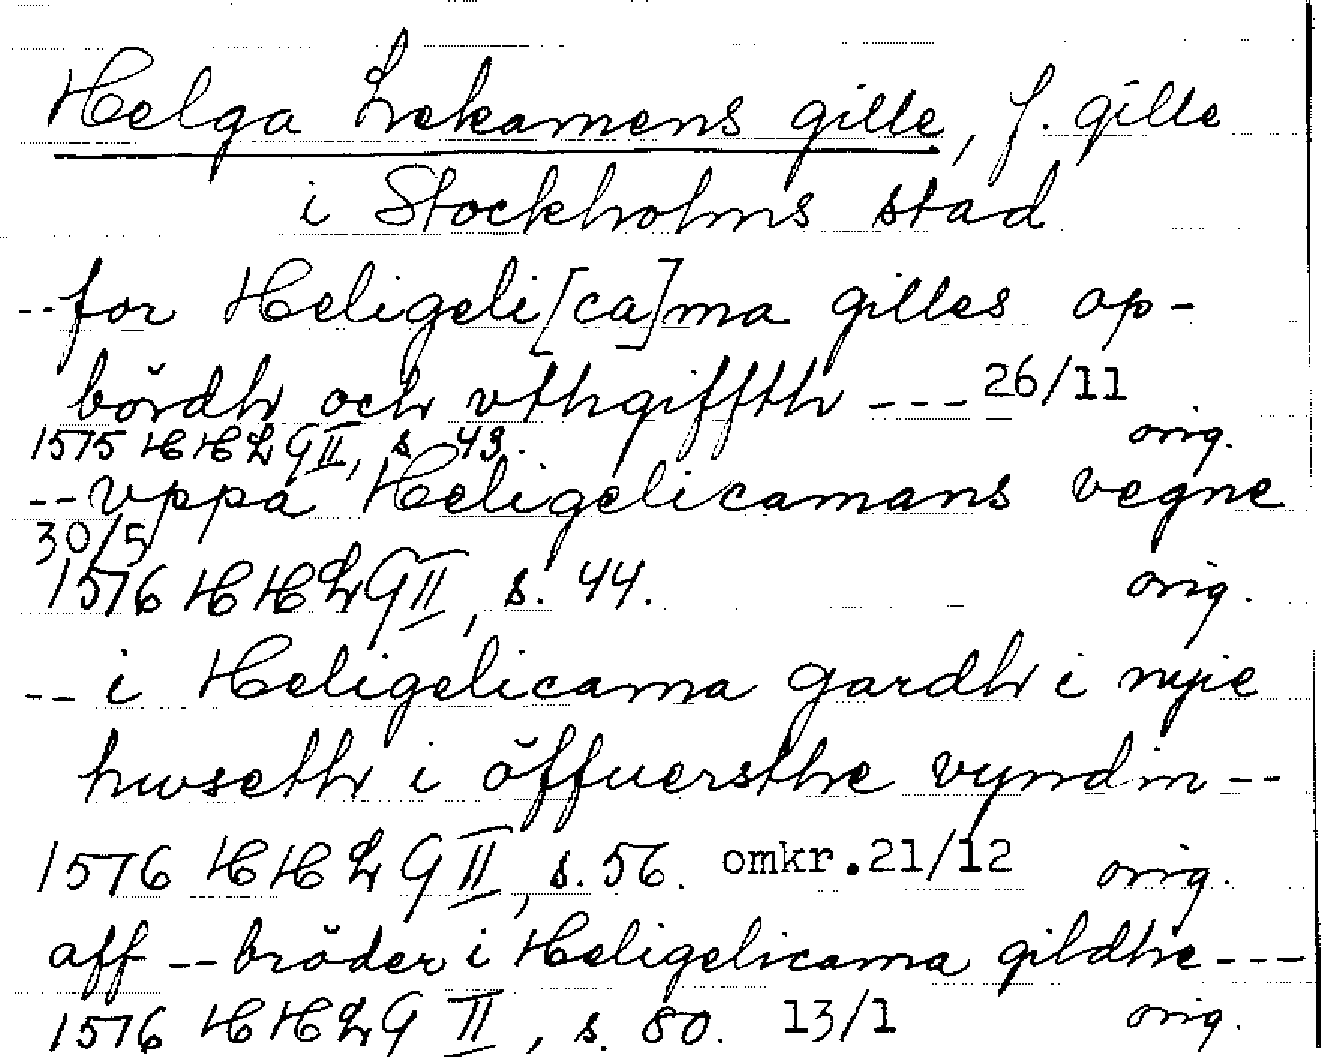 Helga Lekamens gille, f. gille
i Stockholms stad
--for Heligeli[ca]ma gilles op-
bördh och vthgiffth --- 26/11
1575 HHLG II, s. 43. orig.
--vppa Heligelicamans vegne
30/5
1576 HHLG II, s. 44. orig.
-- i Heligelicama gardh i nyie
hwseth i öffuersthe vyndin --
1576 HHLG II, s. 56. omkr. 21/12 orig.
aff -- bröder i Heligelicama gildhe ---
1576 HHLG II, s. 80. 13/1 orig.